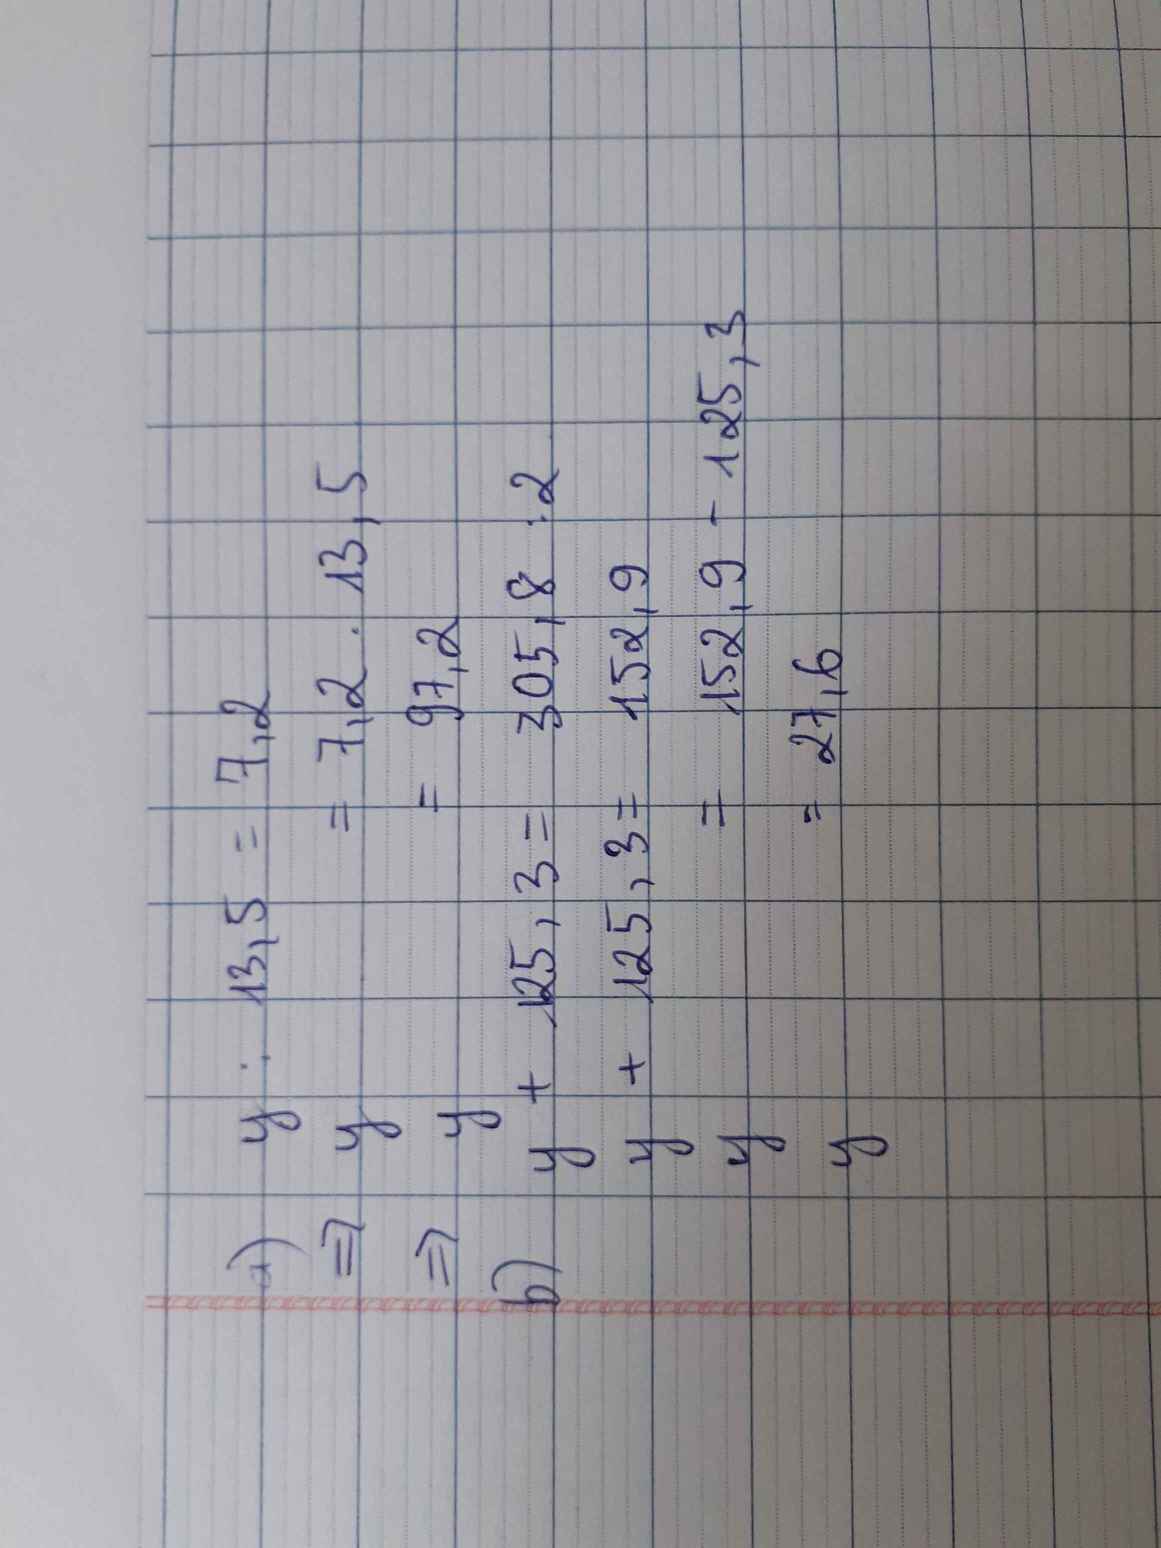 a) y : 13,5 = 7,2
=> y = 7,2 . 13,5
=> y = 97,2
b) y + 125,3 = 305,8 : 2
y + 125,3 = 152,9
y = 152,9 - 125,3
y = 27,6